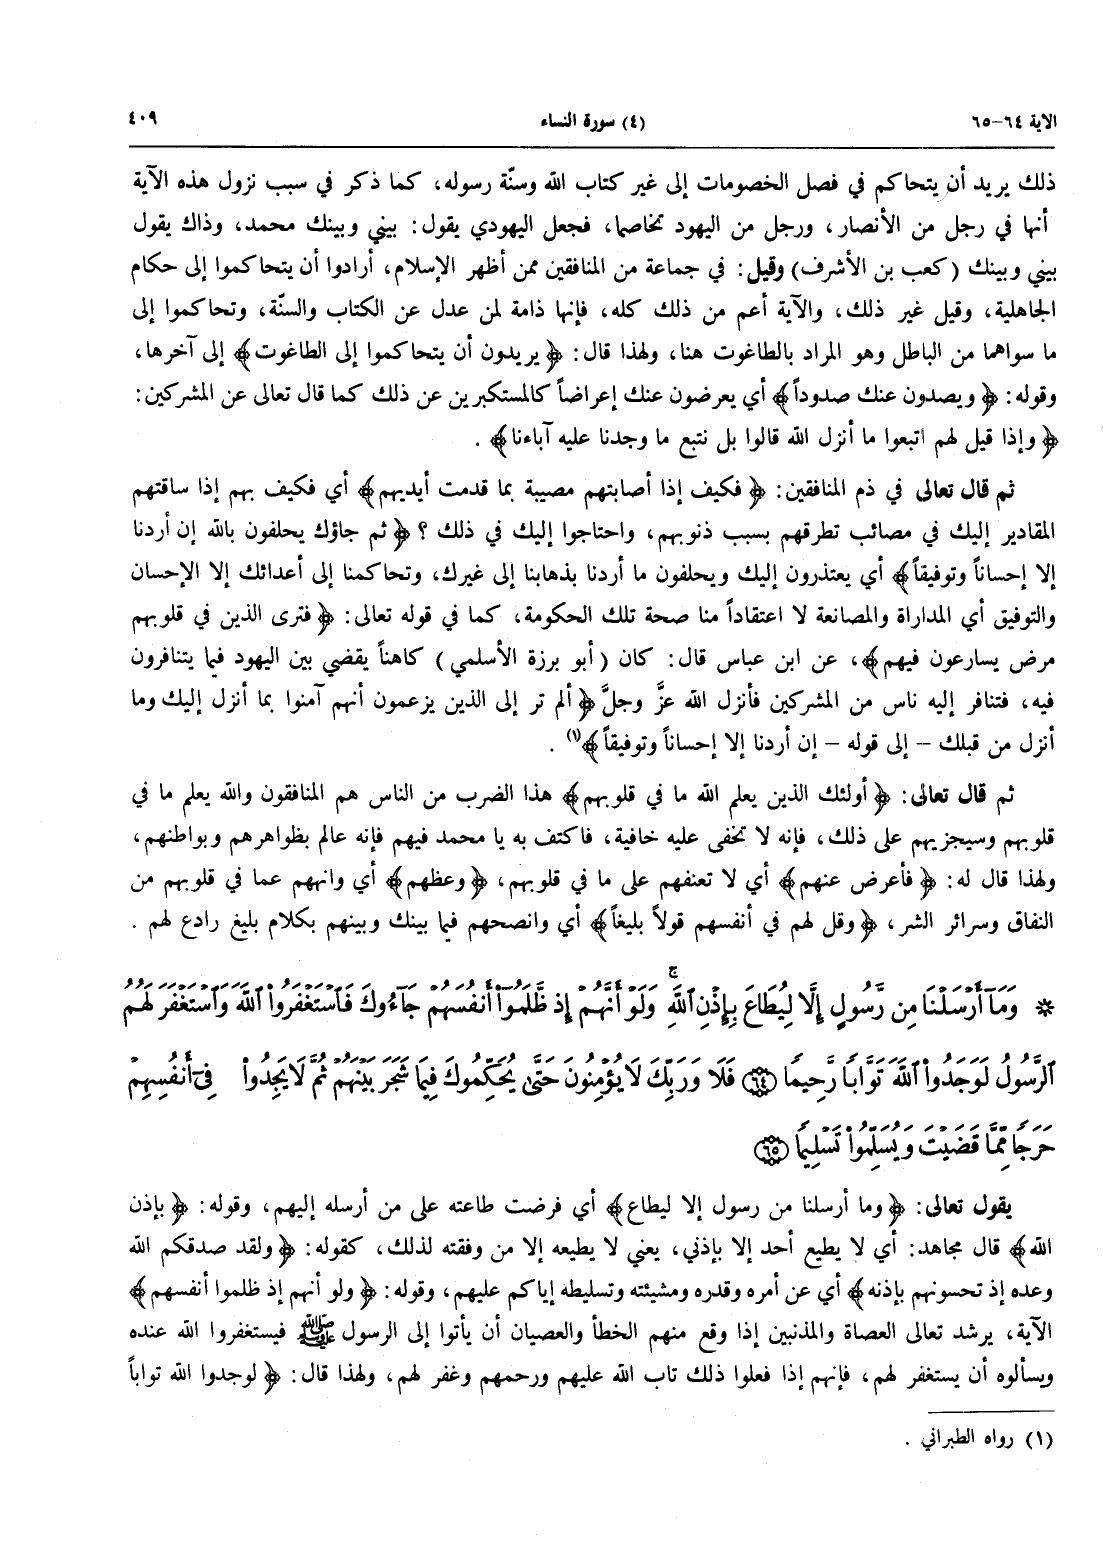 الآية ٦٤-٦٥ (٤) سورة النساء ٤٠٩
ذلك يريد أن يتحاكم في فصل الخصومات إلى غير كتاب الله وسنّة رسوله، كما ذكر في سبب نزول هذه الآية
أنها في رجل من الأنصار، ورجل من اليهود تخاصما، فجعل اليهودي يقول: بيني وبينك محمد، وذاك يقول
بيني وبينك (كعب بن الأشرف) وقيل: في جماعة من المنافقين ممن أظهر الإسلام، أرادوا أن يتحاكموا إلى حكام
الجاهلية، وقيل غير ذلك، والآية أعم من ذلك كله، فإنها ذامة لمن عدل عن الكتاب والسنّة، وتحاكموا إلى
ما سواهما من الباطل وهو المراد بالطاغوت هنا، ولهذا قال: ﴿يريدون أن يتحاكموا إلى الطاغوت﴾ إلى آخرها،
وقوله: ﴿ويصدون عنك صدوداً﴾ أي يعرضون عنك إعراضاً كالمستكبرين عن ذلك كما قال تعالى عن المشركين:
﴿وإذا قيل لهم اتبعوا ما أنزل الله قالوا بل نتبع ما وجدنا عليه آباءنا﴾ .
ثم قال تعالى في ذم المنافقين: ﴿فكيف إذا أصابتهم مصيبة بما قدمت أيديهم﴾ أي فكيف بهم إذا ساقتهم
المقادير إليك في مصائب تطرقهم بسبب ذنوبهم، واحتاجوا إليك في ذلك ؟ ﴿ثم جاؤك يحلفون بالله إن أردنا
إلا إحساناً وتوفيقاً﴾ أي يعتذرون إليك ويحلفون ما أردنا بذهابنا إلى غيرك، وتحاكمنا إلى أعدائك إلا الإحسان
والتوفيق أي المداراة والمصانعة لا اعتقاداً منا صحة تلك الحكومة، كما في قوله تعالى: ﴿فترى الذين في قلوبهم
مرض يسارعون فيهم﴾، عن ابن عباس قال: كان (أبو برزة الأسلمي) كاهناً يقضي بين اليهود فيما يتنافرون
فيه، فتنافر إليه ناس من المشركين فأنزل الله عزَّ وجلَّ ﴿ألم تر إلى الذين يزعمون أنهم آمنوا بما أنزل إليك وما
أنزل من قبلك – إلى قوله – إن أردنا إلا إحساناً وتوفيقاً﴾(١) .
ثم قال تعالى: ﴿أولئك الذين يعلم الله ما في قلوبهم﴾ هذا الضرب من الناس هم المنافقون والله يعلم ما في
قلوبهم وسيجزيهم على ذلك، فإنه لا تخفى عليه خافية، فاكتف به يا محمد فيهم فإنه عالم بظواهرهم وبواطنهم،
ولهذا قال له: ﴿فأعرض عنهم﴾ أي لا تعنفهم على ما في قلوبهم، ﴿وعظهم﴾ أي وانههم عما في قلوبهم من
النفاق وسرائر الشر، ﴿وقل لهم في أنفسهم قولاً بليغاً﴾ أي وانصحهم فيما بينك وبينهم بكلام بليغ رادع لهم .
* وَمَآ أَرْسَلْنَا مِن رَّسُولٍ إِلَّا لِيُطَاعَ بِإِذْنِ ٱللَّهِ ۚ وَلَوْ أَنَّهُمْ إِذ ظَّلَمُوٓا۟ أَنفُسَهُمْ جَآءُوكَ فَٱسْتَغْفَرُوا۟ ٱللَّهَ وَٱسْتَغْفَرَ لَهُمُ
ٱلرَّسُولُ لَوَجَدُوا۟ ٱللَّهَ تَوَّابًا رَّحِيمًا ﴿٦٤﴾ فَلَا وَرَبِّكَ لَا يُؤْمِنُونَ حَتَّىٰ يُحَكِّمُوكَ فِيمَا شَجَرَ بَيْنَهُمْ ثُمَّ لَا يَجِدُوا۟ فِىٓ أَنفُسِهِمْ
حَرَجًا مِّمَّا قَضَيْتَ وَيُسَلِّمُوا۟ تَسْلِيمًا ﴿٦٥﴾
يقول تعالى: ﴿وما أرسلنا من رسول إلا ليطاع﴾ أي فرضت طاعته على من أرسله إليهم، وقوله: ﴿بإذن
الله﴾ قال مجاهد: أي لا يطيع أحد إلا بإذني، يعني لا يطيعه إلا من وفقته لذلك، كقوله: ﴿ولقد صدقكم الله
وعده إذ تحسونهم بإذنه﴾ أي عن أمره وقدره ومشيئته وتسليطه إياكم عليهم، وقوله: ﴿ولو أنهم إذ ظلموا أنفسهم﴾
الآية، يرشد تعالى العصاة والمذنبين إذا وقع منهم الخطأ والعصيان أن يأتوا إلى الرسول ﷺ فيستغفروا الله عنده
ويسألوه أن يستغفر لهم، فإنهم إذا فعلوا ذلك تاب الله عليهم ورحمهم وغفر لهم، ولهذا قال: ﴿لوجدوا الله تواباً
(١) رواه الطبراني .